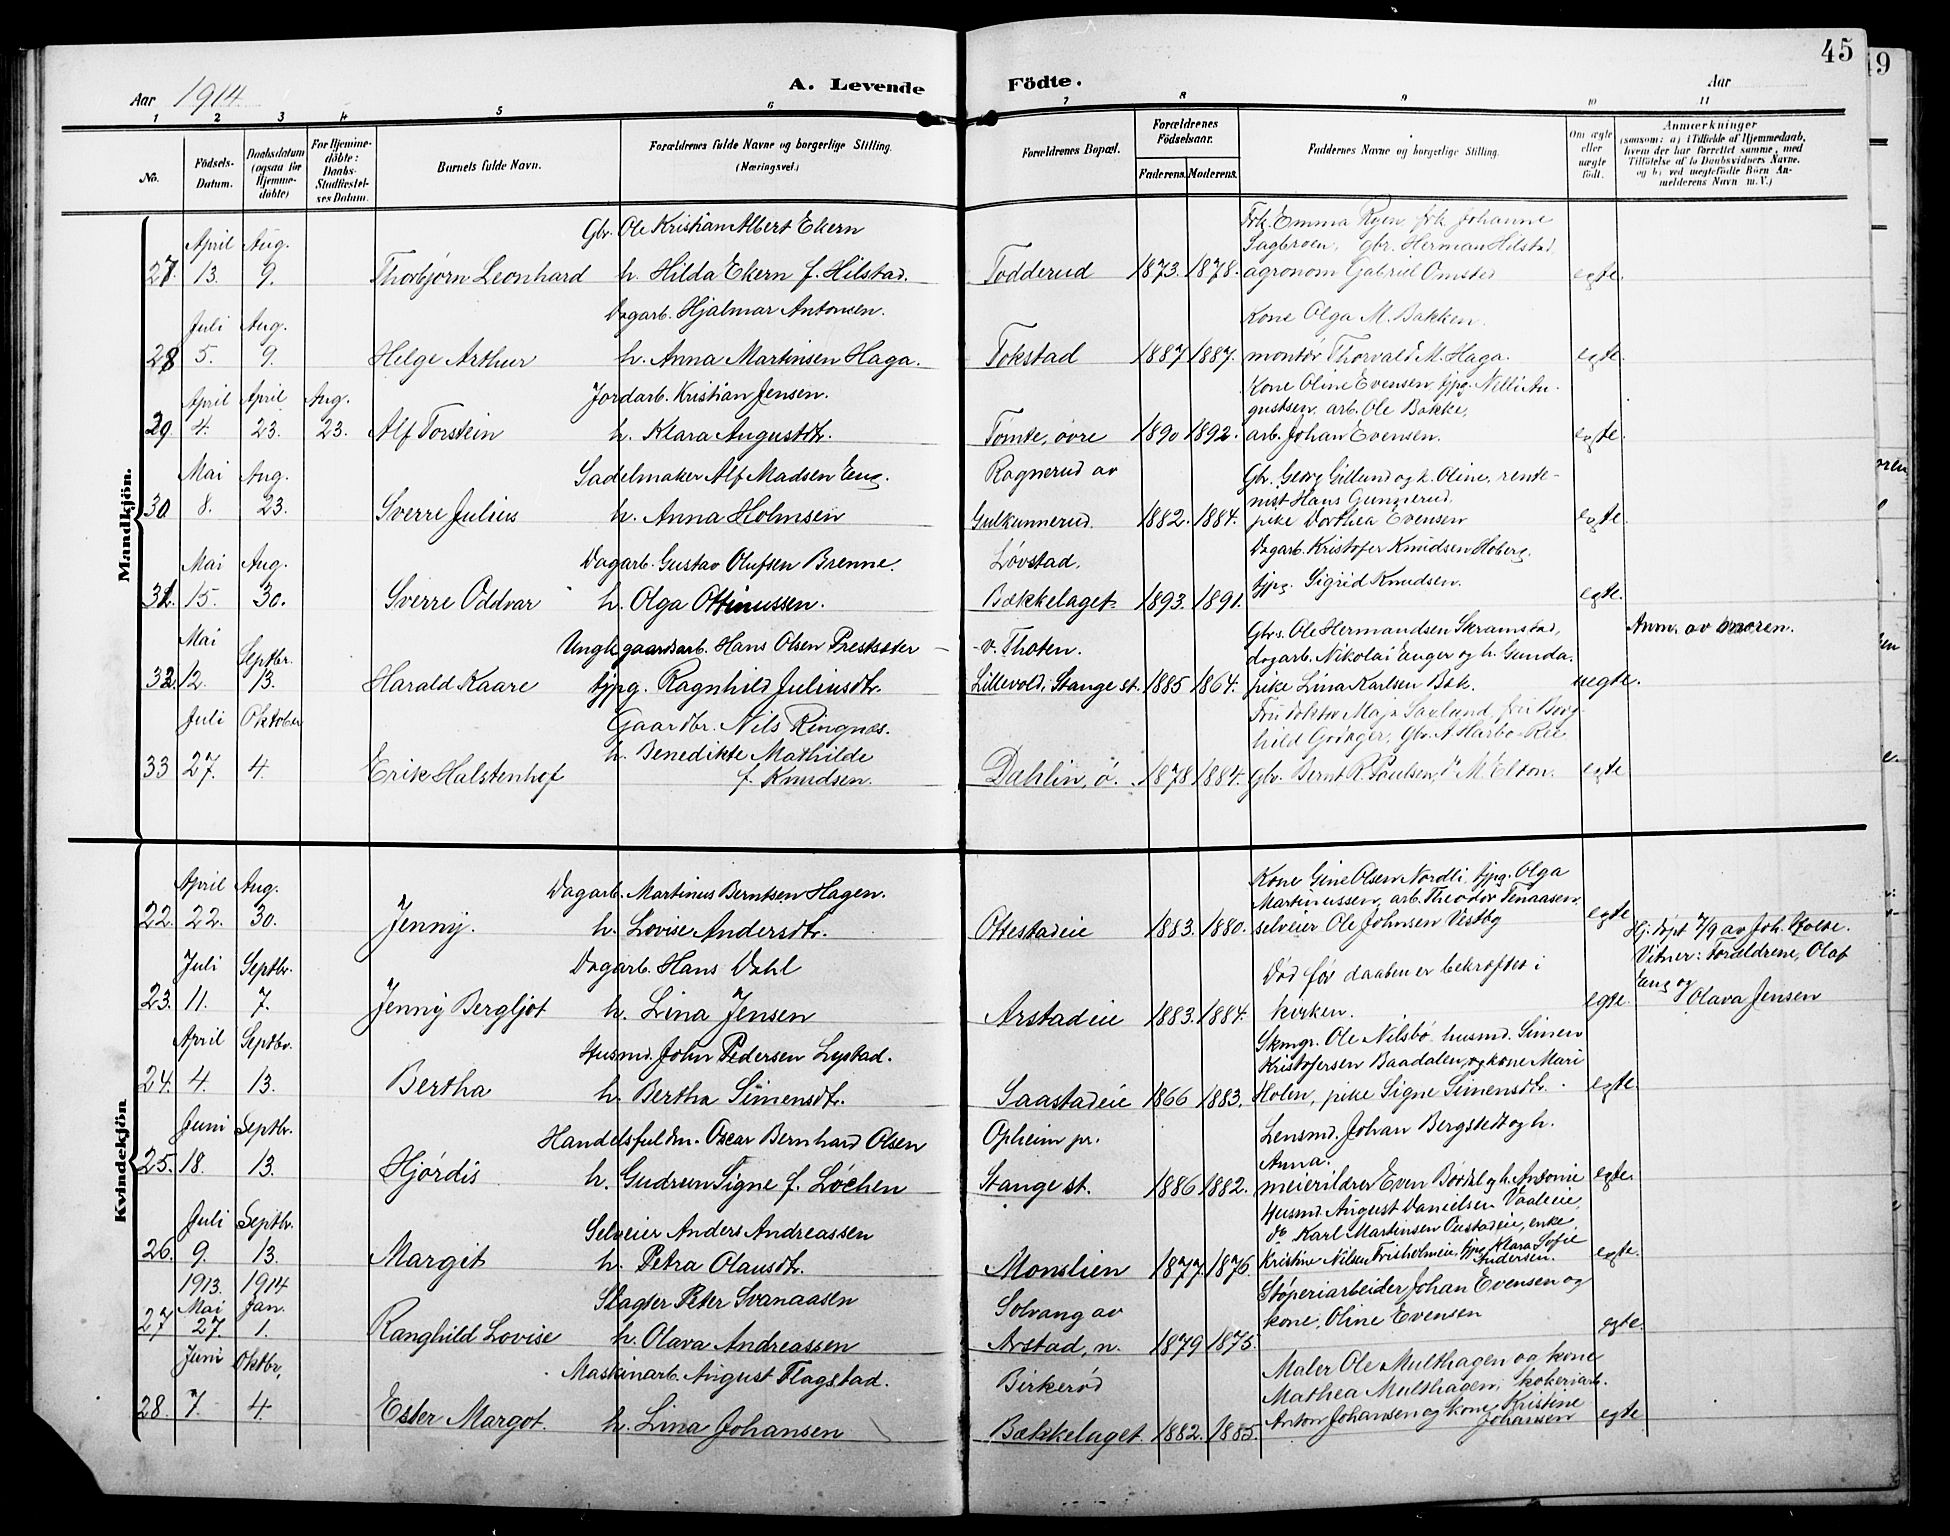 45
49
Aar 1914. A. Levende Födte. Aar
1 2 3 4 5 6 7 8 9 10 11
No. Födsels-Datum. Daabsdatum (ogsaa for Hjemme-döbte) For Hjemme-döbte: Daabs-Stadfæstel-ses Datum. Barnets fulde Navn. Forældrenes fulde Navne og borgerlige Stilling. (Næringsvei.) Forældrenes Bopæl. Forældrenes Födselsaar. Faderens. Moderens. Faddernes Navne og borgerlige Stilling. Om ægte eller uægte födt. Anmærkninger (saasom: a) i Tilfælde af Hjemmedaab, hvem der har forrettet samme, med Tilföielse af to Daabsvidners Navne, og b) ved uegtefödte Börn An-melderens Navn m. V.)
Mandkjön.
Gbr. Ole Kristian Albert Ekern Frk. Emma Ryen, frk. Johanne
April Aug. Sagbroen, gbr. Herman Hilstad,
27. 13. 9. Thorbjørn Leonhard h. Hilda Ekern f. Hilstad. Todderud 1873. 1878. agronom Gabriel Omsted egte.
Dagarb. Hjalmar Antonsen. Kone Olga M. Bakken.
Juli Aug.
28 5. 9. Helge Arthur h. Anna Martinsen Haga. Tokstad 1887 1887. montør Thorvald M. Haga. egte.
April April Aug. Jordarb. Kristian Jensen. Kone Oline Evensen, tjpg. Nilli Au-
gustsen, arb. Ole Bakke,
29. 4. 23. 23. Alf Torstein h. Klara Augustdtr. Tømte, øvre 1890 1892. arb. Johan Evensen. egte.
Mai Aug. Sadelmaker Alf Madsen Eng. Ragnerud av Gbr. Georg Gillund og h. Oline, rente-
nist Hans Gunnerud.
30. 8. 23. Sverre Julius h. Anna Holmsen Gulkunnerud. 1882. 1884. pike Dorthea Evensen egte.
Mai Aug. Dagarb. Gustav Olufsen Brenne. Løvstad, Dagarb. Kristofer Knudsen Hoberg,
31. 15. 30. Sverre Oddvar h. Olga Ottinussen. Bækkelaget. 1893. 1891. tjpg. Sigrid Knudsen. egte.
Mai Septbr. Ungk. gaardsarb. Hans Olsen Prestsæter - v. Thoten. Gbrs. Ole Hermandsen Skramstad, Anm. av moren.
dagarb. Nikolai Enger og h. Gunda.
32. 12. 13. Harald Kaare tjpg. Ragnhild Juliusdtr. Lillevold, Stange st. 1885 1864. pike Lina Karlsen Bæk. uegte.
Juli Oktober Gaardbr. Nils Ringnes. Fru doktor Maja Saxlund, fru Borg-
h. Benedikte Mathilde hild Godager, gbr. A Harbo-Ree
33 27. 4. Erik Halstenhof f. Knudsen. Dahlin, ø. 1878 1884. gbr. Bernt R. Paulsen, do M. Elton. egte
Kvindekjön.
April Aug. Dagarb. Martinus Berntsen Hagen. Kone Gine Olsen Nordli, tjpg. Olga
Martinussen, arb. Theodor Tenaasen,
22. 22. 30. Jenny. h. Lovise Andersdtr. Ottestadeie 1883. 1880. selveier Ole Johnsen Vestby egte
Juli Septbr. Dagarb. Hans Dahl Død før daaben er bekræftet i Hj. døpt 7/9 av Joh. Holte. Vitner: Forældrene, Olaf Eng og Olava Jensen
23. 11. 7. Jenny Bergljot h. Lina Jensen Arstadeie 1883. 1884. kirken. egte.
April Septbr. Husmd. John Pedersen Lystad. Skmgr. Ole Nilsbø, husmd. Simen
Kristofersen Baadalen, og kone Mari
24. 4. 13. Bertha h. Bertha Simensdtr. Saastadeie 1866 1883. Holm, pike Signe Simensdtr. egte.
Juni Septbr. Handelsfuldm. Oscar Bernhard Olsen Opheim pr. Lensmd. Johan Bergstedt og h.
Anna.
25. 18. 13. Hjørdis h. Gudrun Signe f. Løchen Stange st. 1886 1882. meierilærer Even Bordal og h. Antonie egte.
Juli Septbr. Selveier Anders Andreassen Husmd. August Danielsen Vaaleie,
do Karl Martinsen Oustadeie, enke
26. 9. 13. Margit h. Petra Olausdtr. Monslien 1877. 1876. Kristine Nilsen Frisholmeie, tjpg. Klara Sofie Andersen. egte.
1913. 1914 Mai Jan. Slagter Peter Svanaasen Solvang av Støperiarbeider Johan Evensen og
27 27. 1. Ranghild Lovise h. Olava Andreassen Arstad, n. 1879 1875. kone, Oline Evensen egte.
Juni Oktbr. Maskinarb. August Flagstad. Birkerød Maler Ole Multhagen og kone
Mathea Multhagen, kokeriarb.
28. 7. 4. Ester Margot. h. Lina Johansen Bækkelaget. 1882. 1885. Anton Johansen og kone Kristine Johansen egte